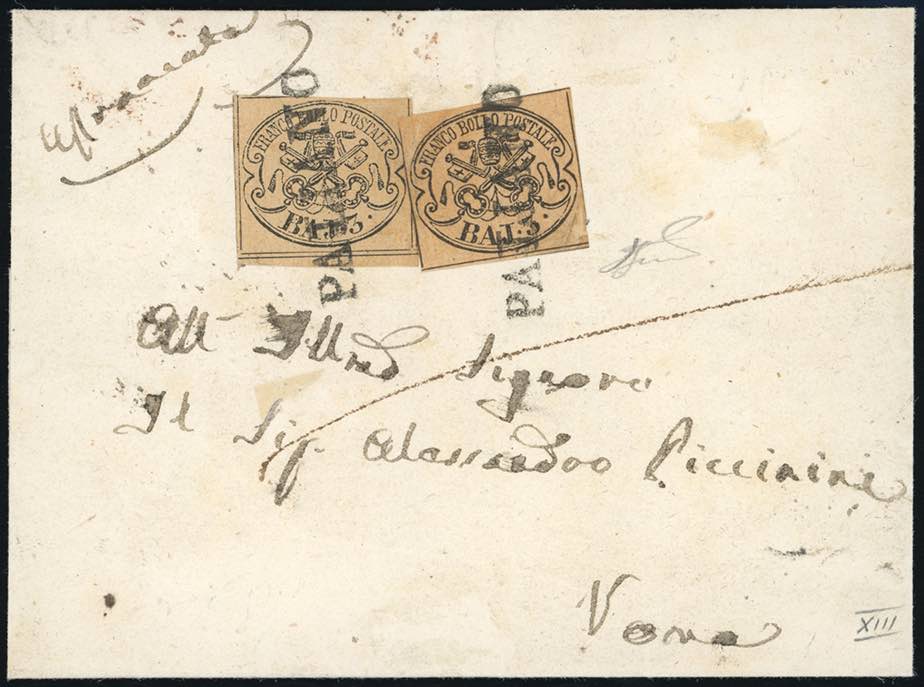 Affrancata
FRANCO BOLLO POSTALE
BAJ. 3.
FRANCO BOLLO POSTALE
BAJ. 3.
PALIANO
PALIANO
All' Illmo Signore
Il Sig. Alessandro Piccinini
Roma
XIII